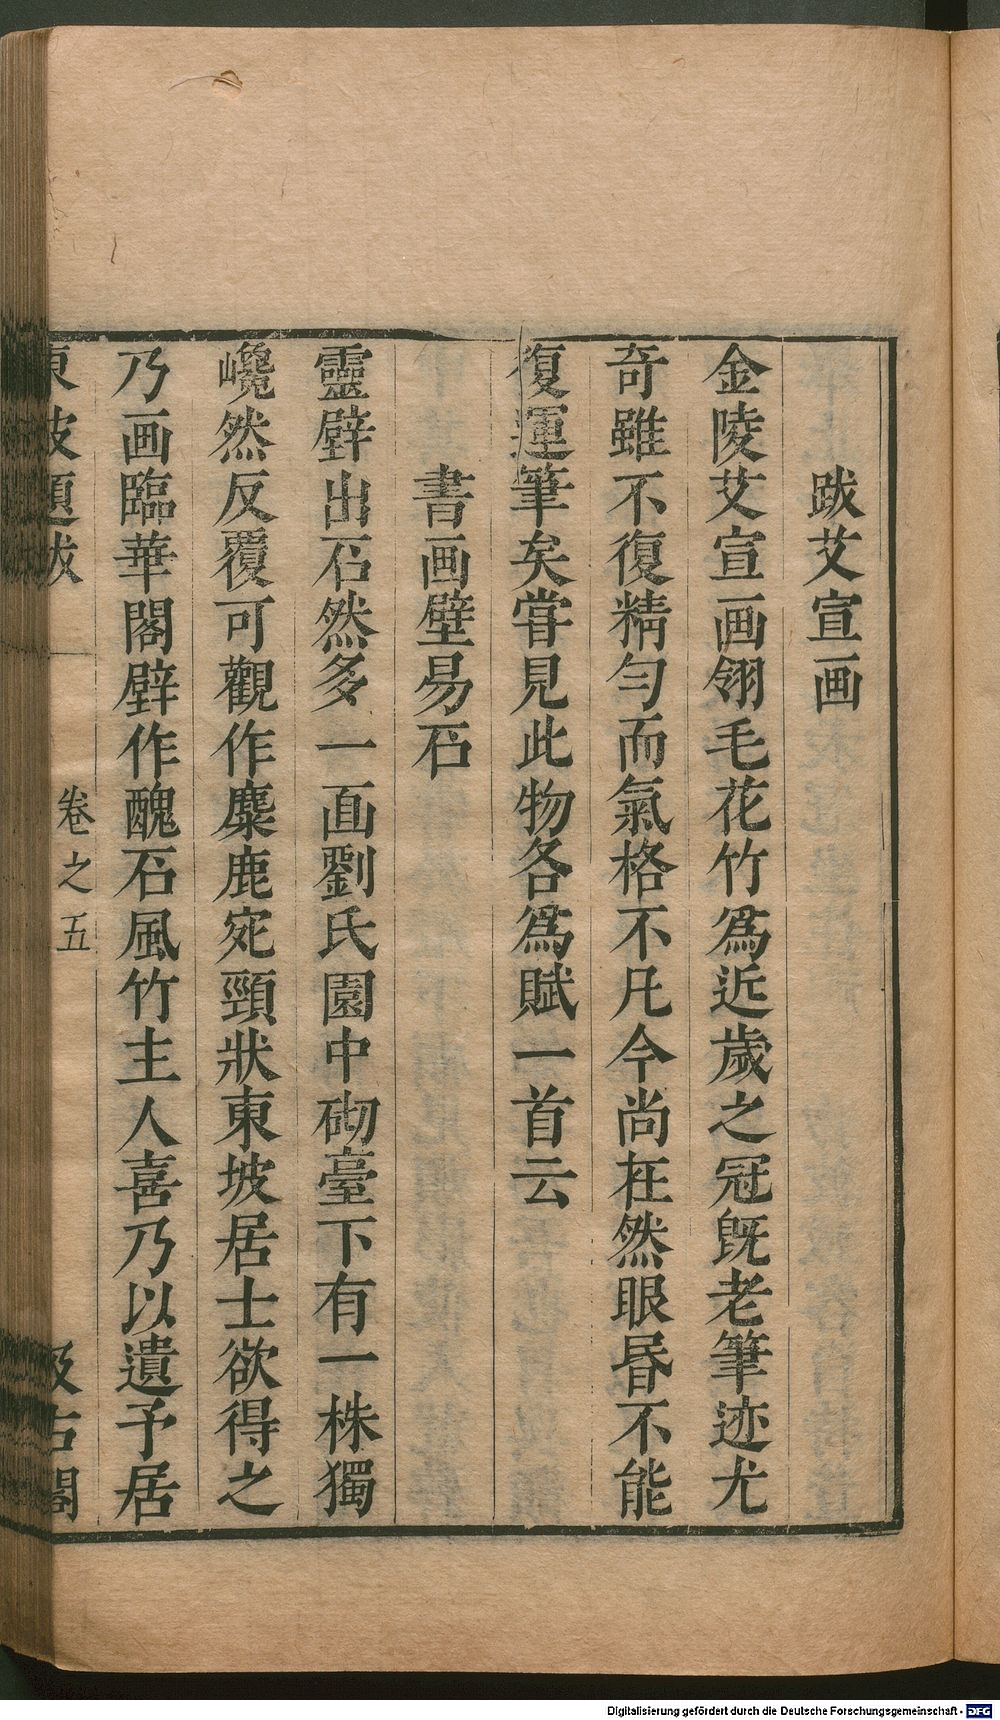 跋艾宣画
金陵艾宣画翎毛花竹爲近歲之冠旣老筆迹尤
奇雖不復精匀而氣格不凡今尚在然眼昏不能
復運筆矣甞見此物各爲賦一首云
書画壁易石
靈壁出石然多一面劉氏園中砌臺下有一株獨
巉然反覆可觀作麋鹿宛頸狀東坡居士欲得之
乃画臨華閣壁作醜石風竹主人喜乃以遺予居
東坡題跋 卷之五 汲古閣
Digitalisierung gefördert durch die Deutsche Forschungsgemeinschaft - DFG